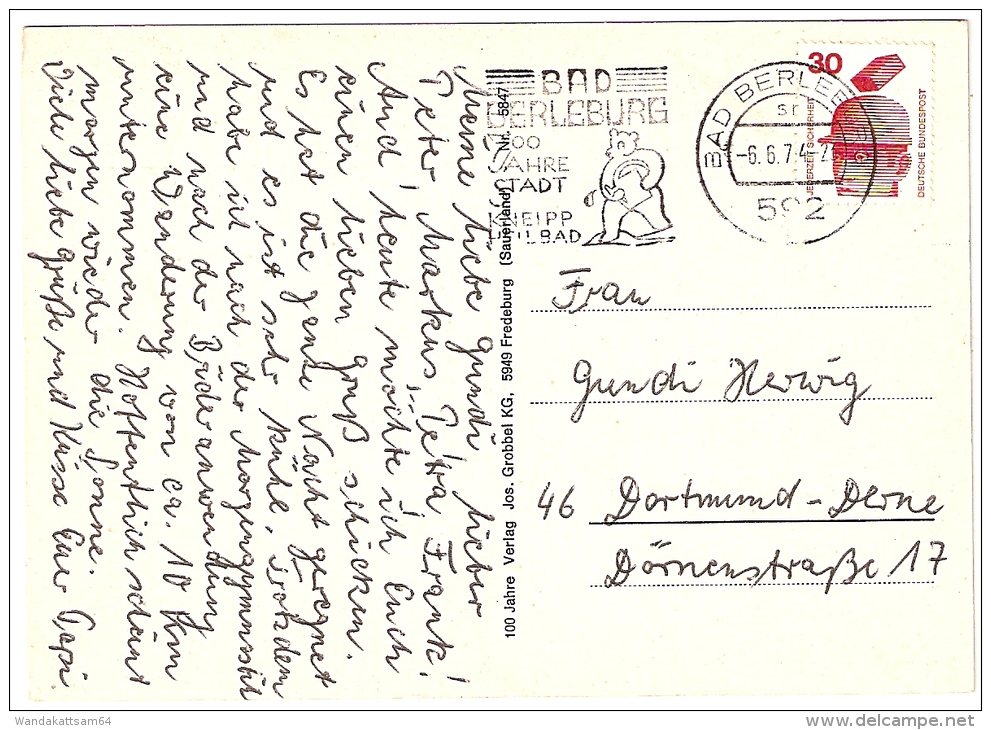 Meine liebe Gundi, lieber
Peter, Markus, Petra, Frank!
Auch heute möchte ich Euch
einen lieben Gruß schicken.
Es hat die ganze Nacht geregnet
und es ist sehr kühl. Trotzdem
habe ich nach der Morgengymnastik
und nach der Bäderanwendung
eine Wanderung von ca. 10 Km
unternommen. Hoffentlich scheint
morgen wieder die Sonne.
Viele liebe Grüße und Küsse Euer Papi.
100 Jahre Verlag Jos. Grobbel KG, 5949 Fredeburg (Sauerland) Nr. 5847
BAD
BERLEBURG
700
JAHRE
STADT
KNEIPP
HEILBAD
BAD BERLEBURG
sr
-6.6.74-2
592
30
JEDERZEIT SICHERHEIT
DEUTSCHE BUNDESPOST
Frau
Gundi Herwig
46 Dortmund-Derne
Dörnenstraße 17
Wandakattsam64
delcampe.net